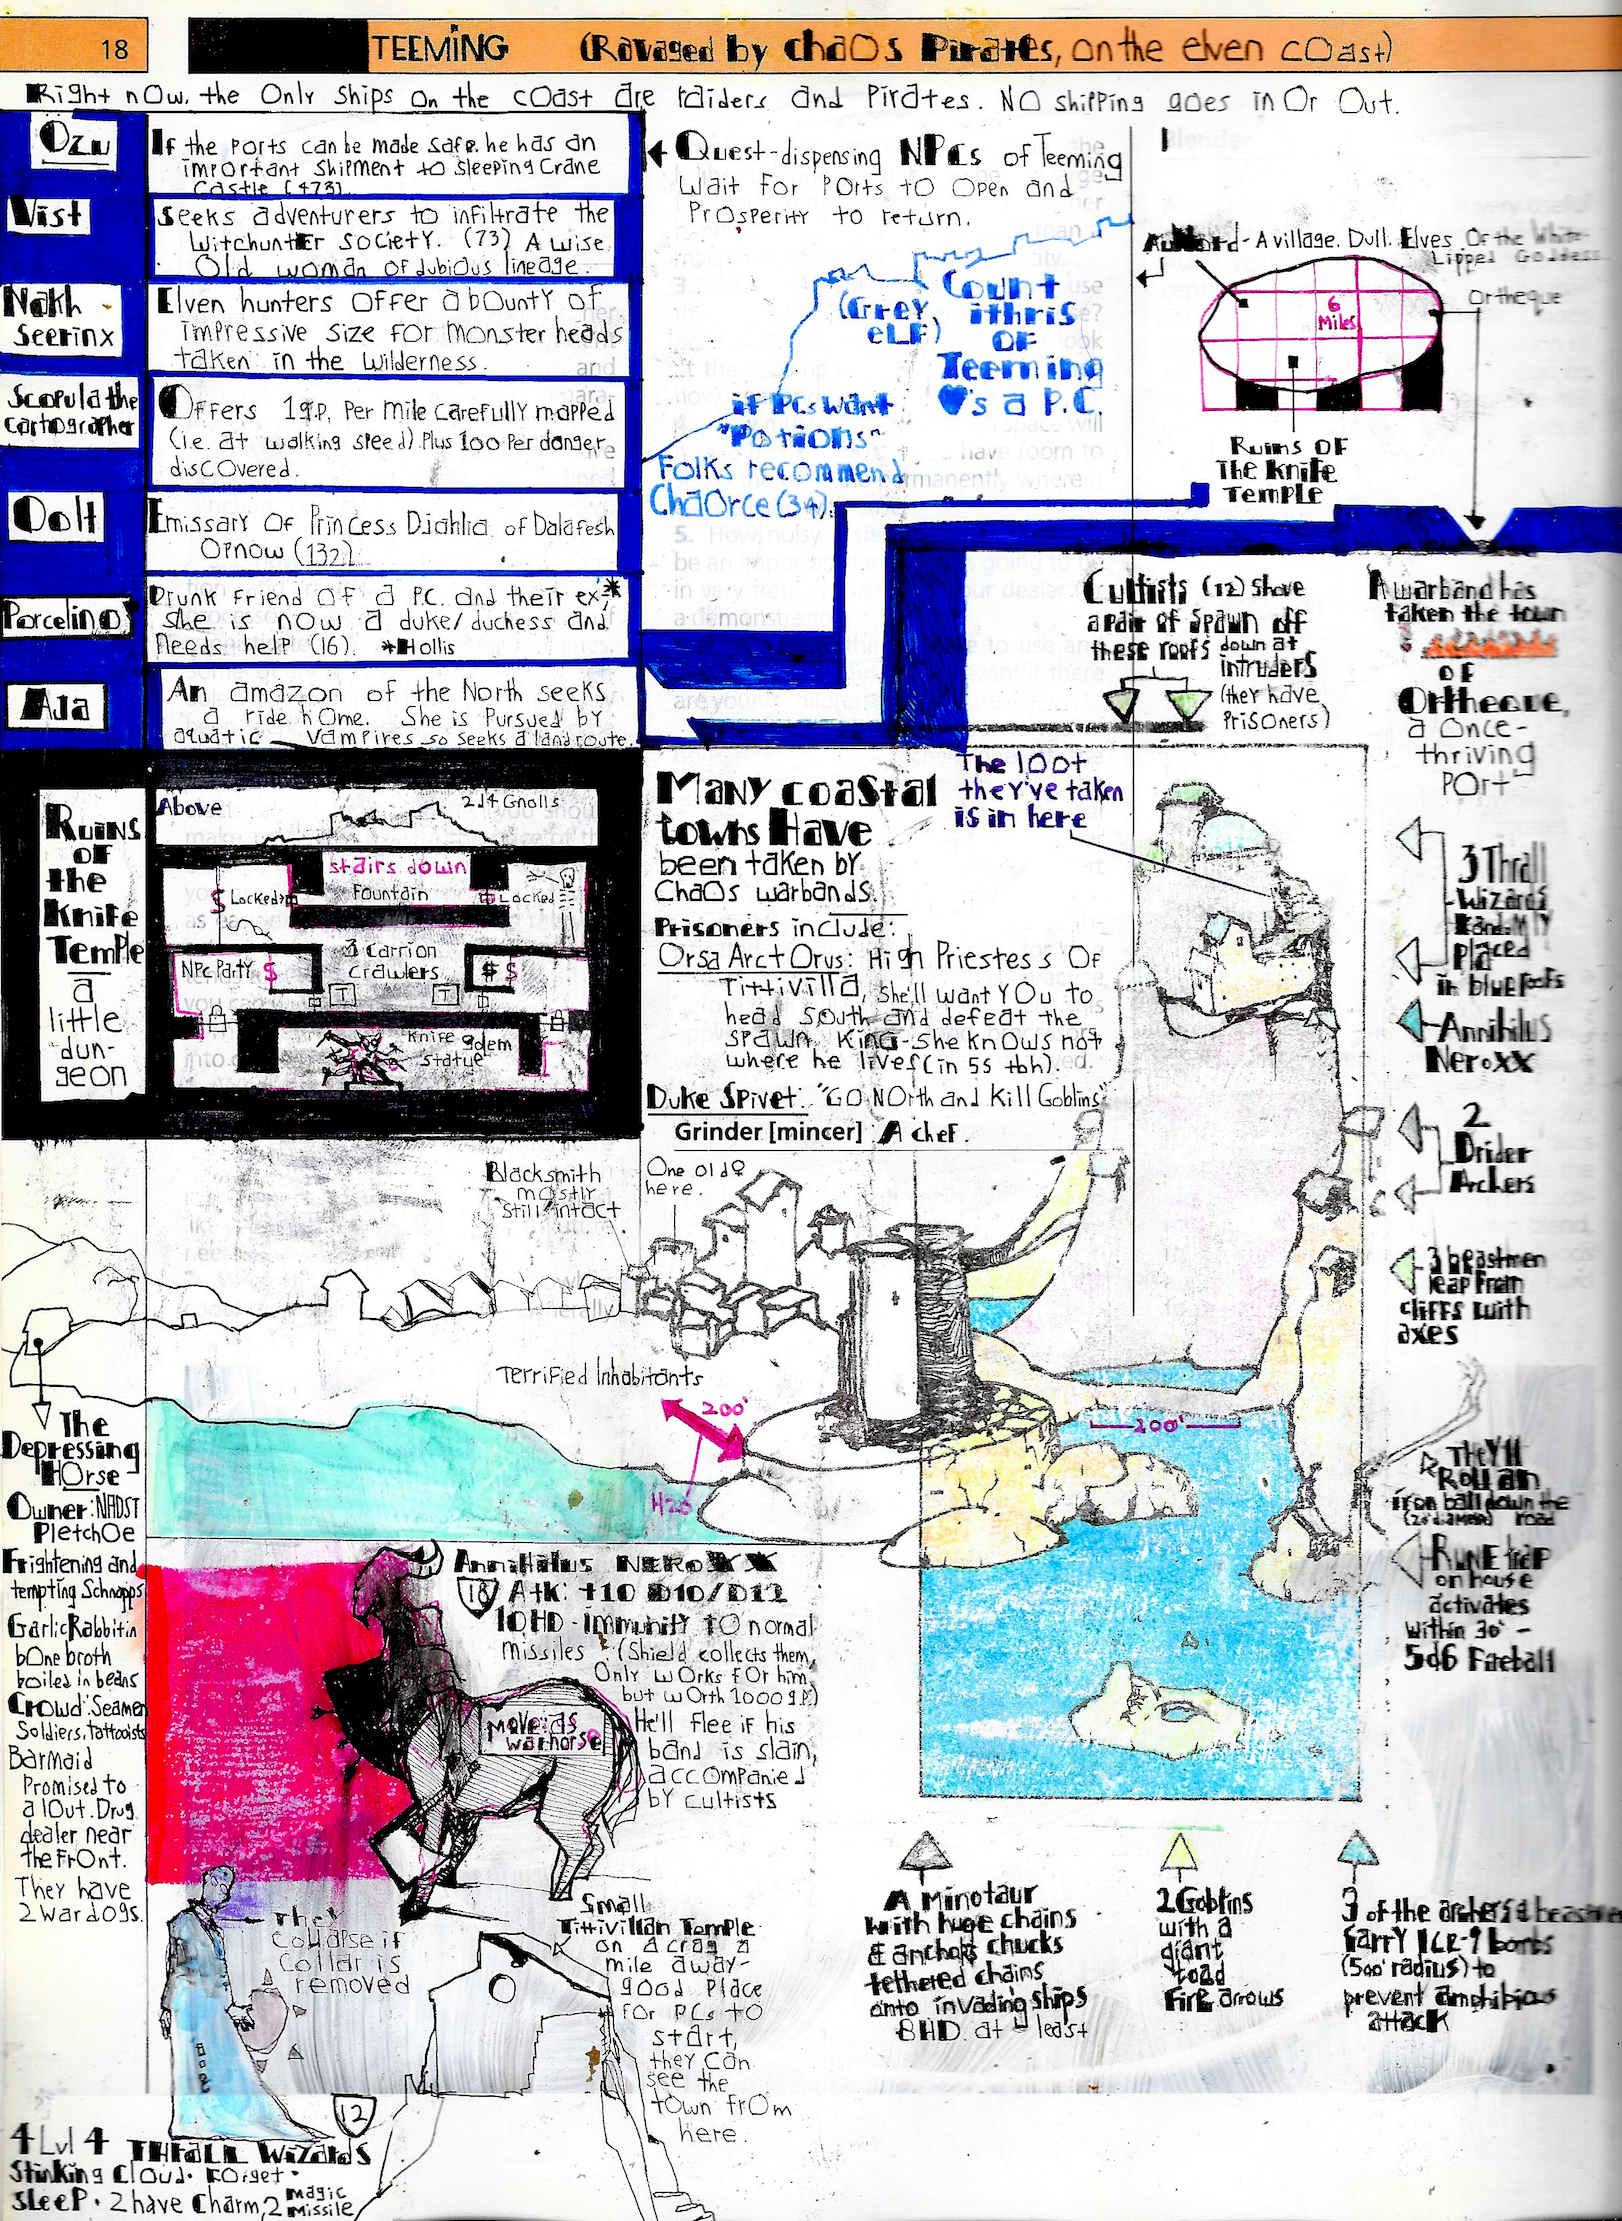 18
TEEMING (Ravaged by chaOs Pirates, on the elven cOast)
Right nOw, the Only Ships On the cOast are raiders and Pirates. NO shipping goes in Or Out.
Ozu
If the Ports can be made safe, he has an
important Shipment to Sleeping Crane
Castle (473)
Vist
Seeks adventurers to infiltrate the
Witchunter Society. (73) A wise
Old woman Of dubious lineage.
Nakh
Seerinx
Elven hunters Offer a bOunty of
impressive size for monster heads
taken in the Wilderness.
Scopula the
Cartographer
Offers 1g.p. Per mile carefully mapped
(i.e. at walking speed) Plus 100 Per danger
discOvered.
Oolt
Emissary Of Princess Djahlia of Dalafesh
Ornow (132)
Porcelino
Drunk Friend Of a P.C. and their ex*
She is now a duke/duchess and
Needs help (16). *Hollis
Aja
An amazon of the North seeks
a ride home. She is Pursued by
aquatic vampires so seeks a land route.
Quest-dispensing NPCs of Teeming
Wait For POrts tO Open and
PrOsperity to return.
Count
ithris
OF
Teeming
♥'s a P.C.
(Grey
eLF)
if PCs want
"Potions"
Folks recommend
ChaOrce (34).
- A village. Dull. Elves Of the White-
Lipped Goddess.
Ortheque
6
Miles
Ruins OF
The Knife
Temple
Cultists (12) Shove
a pair of Spawn off
these roofs down at
intruders
(they have
Prisoners)
A warband has
taken the town
OF
Ortheque,
a Once-
thriving
POrt
Ruins
OF
the
Knife
Temple
a
little
dun-
geon
Above
2d4 Gnolls
stairs down
Fountain
$ Locked
Locked
NPC Party $
3 Carrion
crawlers
$ $
T
T
Knife golem
statue
Many coastal
towns Have
been taken by
ChaOs warbands.
The lOOt
they've taken
is in here
Prisoners include:
Orsa Arct Orus: High Priestess Of
Tittivilla, She'll want YOu to
head South and defeat the
spawn King-She knOws not
where he lives (in 55 tbh).
Duke Spivet: "GO NOrth and Kill Goblins"
Grinder [mincer]: A chef.
3 Thrall
Wizards
Randomly
placed
in blue roofs
Annihilus
Neroxx
2
Drider
Archers
3 beastmen
leap from
cliffs with
axes
Blacksmith
mostly
still intact
One old ♀
here.
Terrified Inhabitants
200'
H20
200'
They'll
Roll an
iron ball down the
(20' diameter) road
Rune trap
on house
activates
Within 30' -
5d6 Fireball
The
Depressing
HOrse
Owner: NADST
PletchOe
Frightening and
tempting Schnapps
Garlic Rabbit in
bOne broth
boiled in beans
Crowd: Seamen
Soldiers, Tattooists
Barmaid
Promised to
a lOut. Drug
dealer near
the FrOnt.
They have
2 War dOgs.
Annihilus NEROXX
18 Atk: +10 D10/D12
10HD - immunity TO normal
missiles (Shield collects them,
Only wOrks FOr him,
but wOrth 1000 g.P.)
He'll flee if his
band is slain,
accOmpanied
bY cultists
Move: as
warhorse
They
Collapse if
Collar is
removed
Small
Tittivilian Temple
on a crag a
mile away-
gOOd Place
FOr PCs tO
start,
they can
see the
tOwn frOm
here.
12
4 Lvl 4 Thrall Wizards
Stinking Cloud. Forget.
Sleep. 2 have Charm, 2 magic
missile
A Minotaur
with huge chains
& anchors chucks
tethered chains
onto invading ships
8HD at least
2 Goblins
with a
giant
toad
Fire arrows
3 of the archers & beastmen
carry ICE-9 bombs
(500' radius) to
prevent amphibious
attack